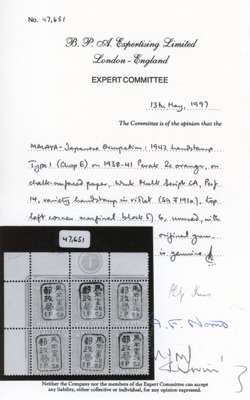 No. 47,651
B. P. A. Expertising Limited
London - England
EXPERT COMMITTEE
13th May, 1997
The Committee is of the opinion that the
MALAYA - Japanese Occupation: 1942 handstamp
Type 1 (Chop E) on 1938-41 Perak 2c orange, on
chalk-surfaced paper, wmk Mult Script CA, Perf
14, variety handstamp in violet (SG J191a), top
left corner marginal block of 6, unused, with
original gum
is genuine
47,651
Neither the Company nor the members of the Expert Committee can accept
any liability, either collective or individual, for any opinion expressed.